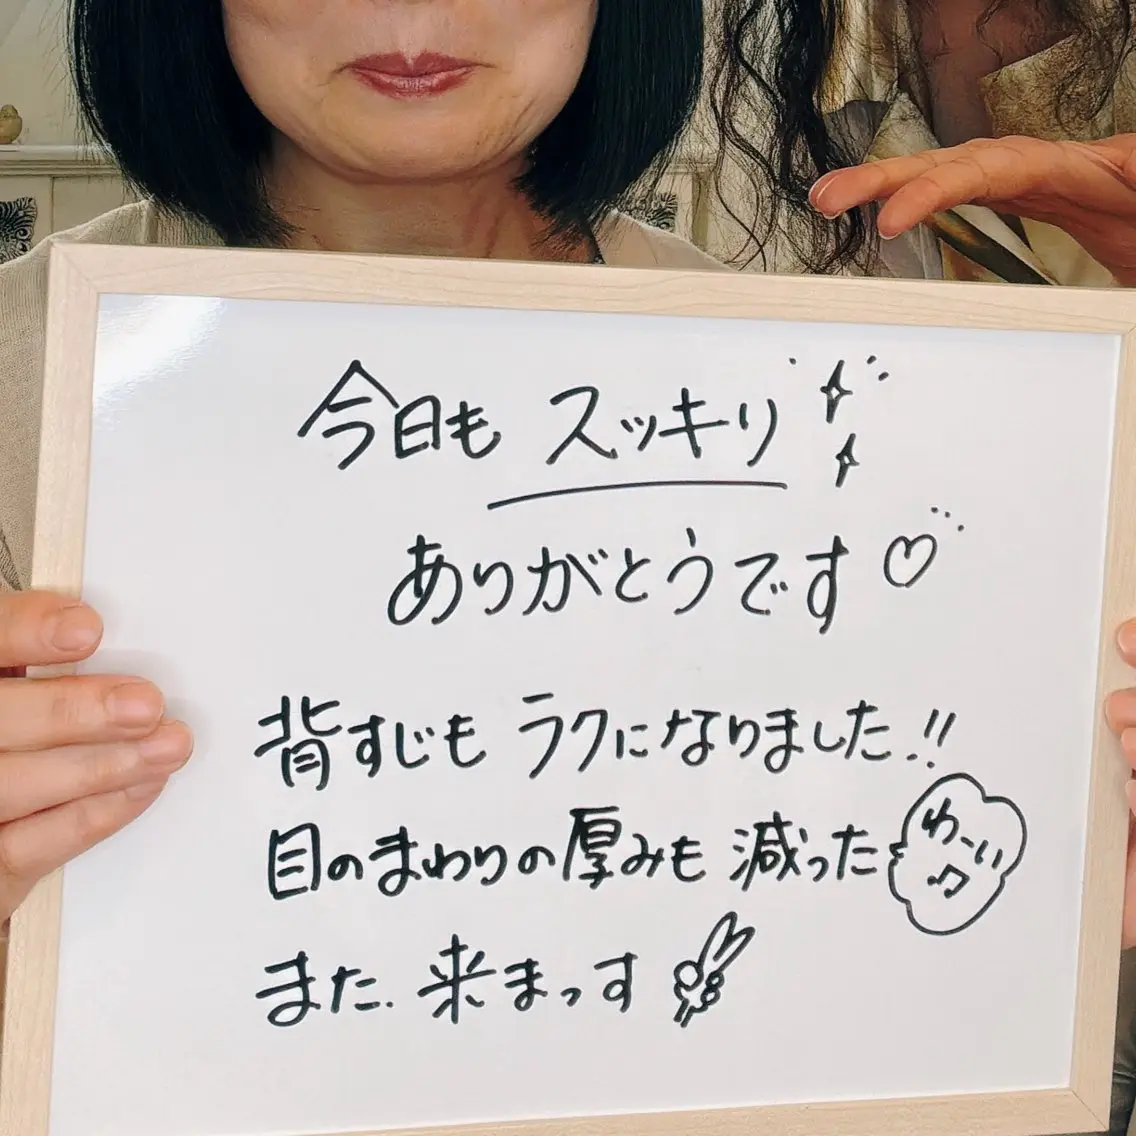 今日も スッキリ
ありがとうです♡
背すじも ラクになりました!!
目のまわりの厚みも 減った
わーい♪
また. 来まっす✌